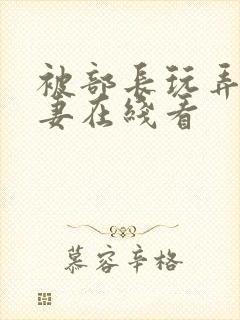 被部长玩弄
妻在线看
慕容辛格